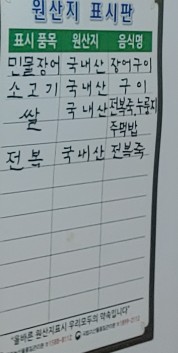 원산지 표시판
표시 품목 원산지 음식명
민물장어 국내산 장어구이
소고기 국내산 구이
쌀 국내산 전복죽, 누룽지
주먹밥
전복 국내산 전복죽
"올바른 원산지표시 우리모두의 약속입니다"